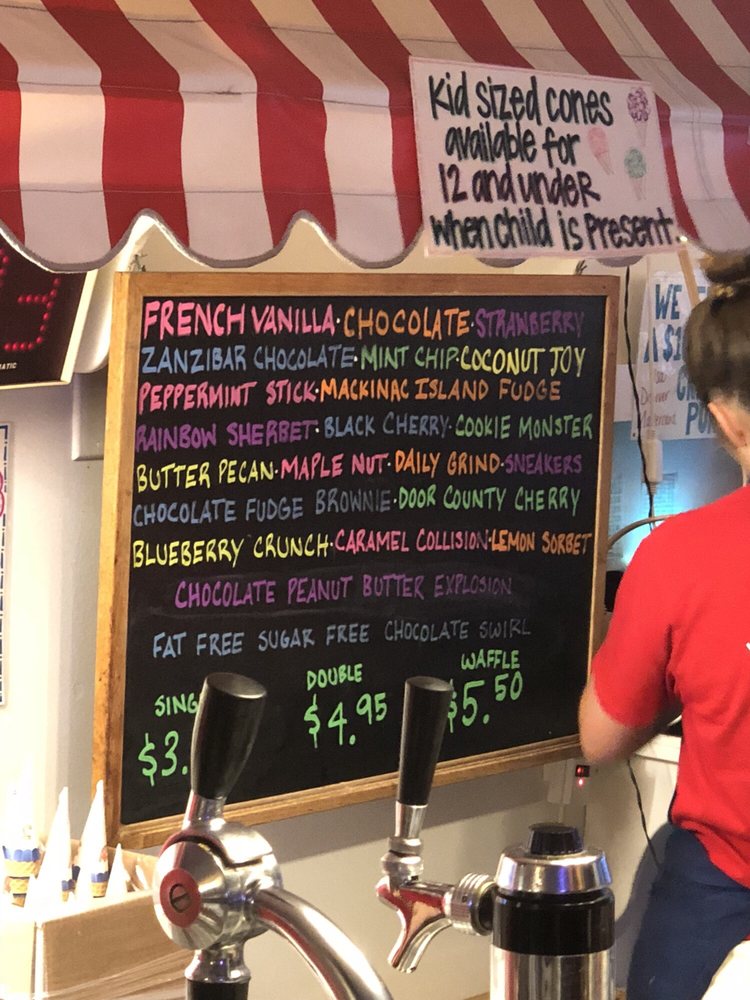 Kid sized cones
available for
12 and under
when child is present
FRENCH VANILLA · CHOCOLATE · STRAWBERRY
ZANZIBAR CHOCOLATE · MINT CHIP · COCONUT JOY
PEPPERMINT STICK · MACKINAC ISLAND FUDGE
RAINBOW SHERBET · BLACK CHERRY · COOKIE MONSTER
BUTTER PECAN · MAPLE NUT · DAILY GRIND · SNEAKERS
CHOCOLATE FUDGE BROWNIE · DOOR COUNTY CHERRY
BLUEBERRY CRUNCH · CARAMEL COLLISION · LEMON SORBET
CHOCOLATE PEANUT BUTTER EXPLOSION
FAT FREE SUGAR FREE CHOCOLATE SWIRL
SING
$3.
DOUBLE
$4.95
WAFFLE
$5.50
WE
3